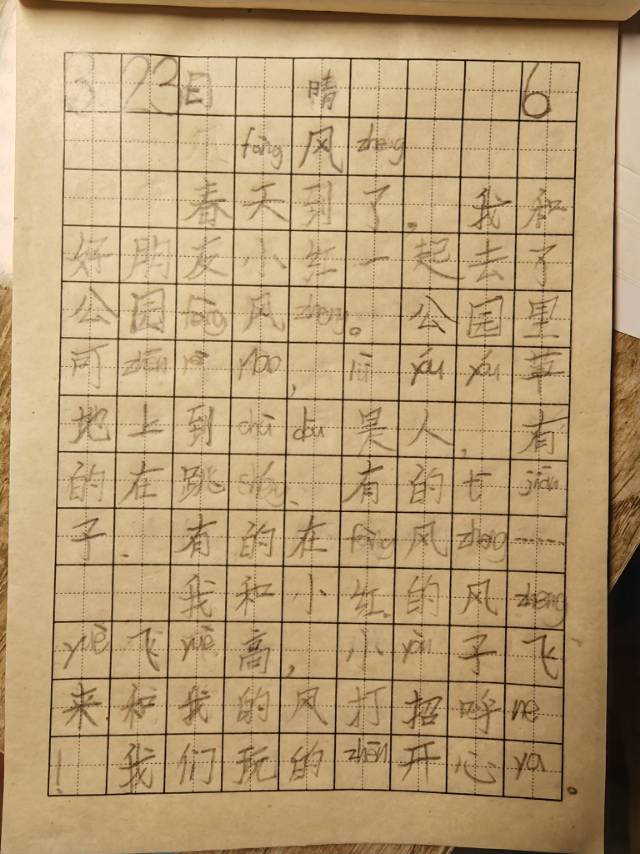 3.23日 晴 6
fàng风zheng
春天到了。我和
好朋友小红一起去了
公园fàng风zheng。公园里
可zhēn rè nào，lǜ yóu yóu草
地上到chù dōu是人，有
的在跳shéng、有的t jiàn
子．有的在fàng风zheng……
我和小红的风zheng
yuè飞yuè高，小yàn子飞
来和我的风打招呼ne
！我们玩的zhēn开心ya。